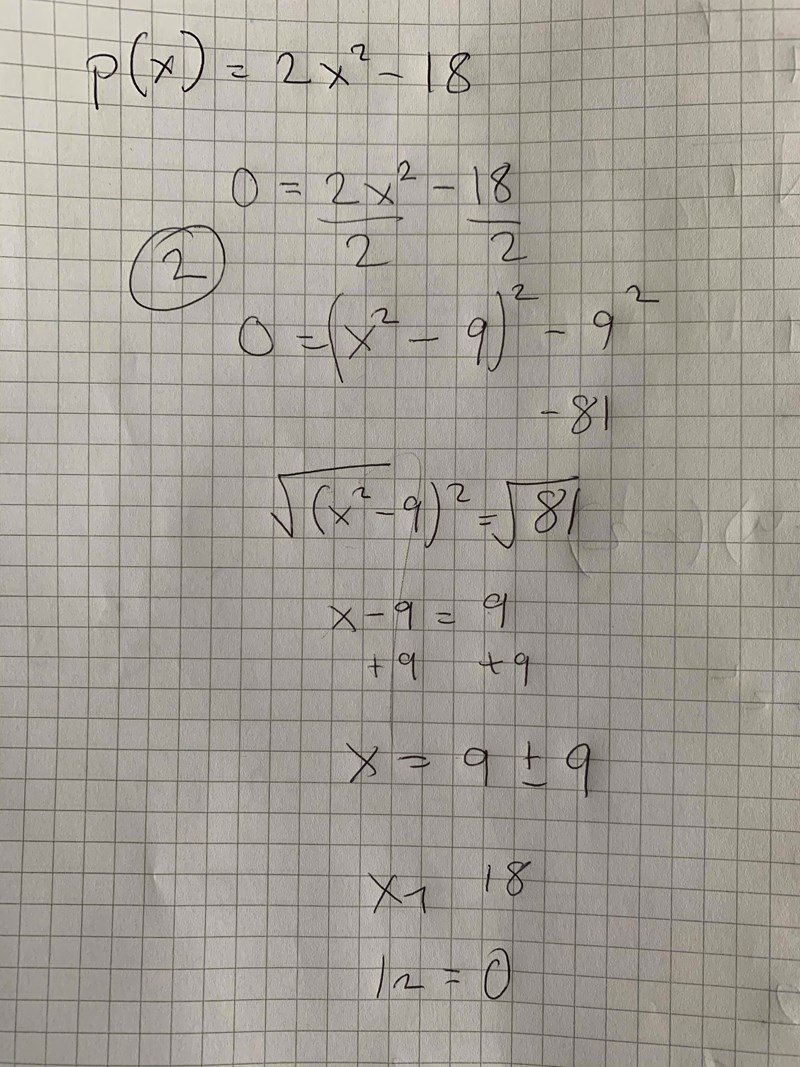 p(x) = 2x² - 18
0 = 2x²/2 - 18/2
2
0 = (x² - 9)² - 9²
-81
√(x² - 9)² = √81
x - 9 = 9
+9 +9
x = 9 ± 9
x1 18
12 = 0